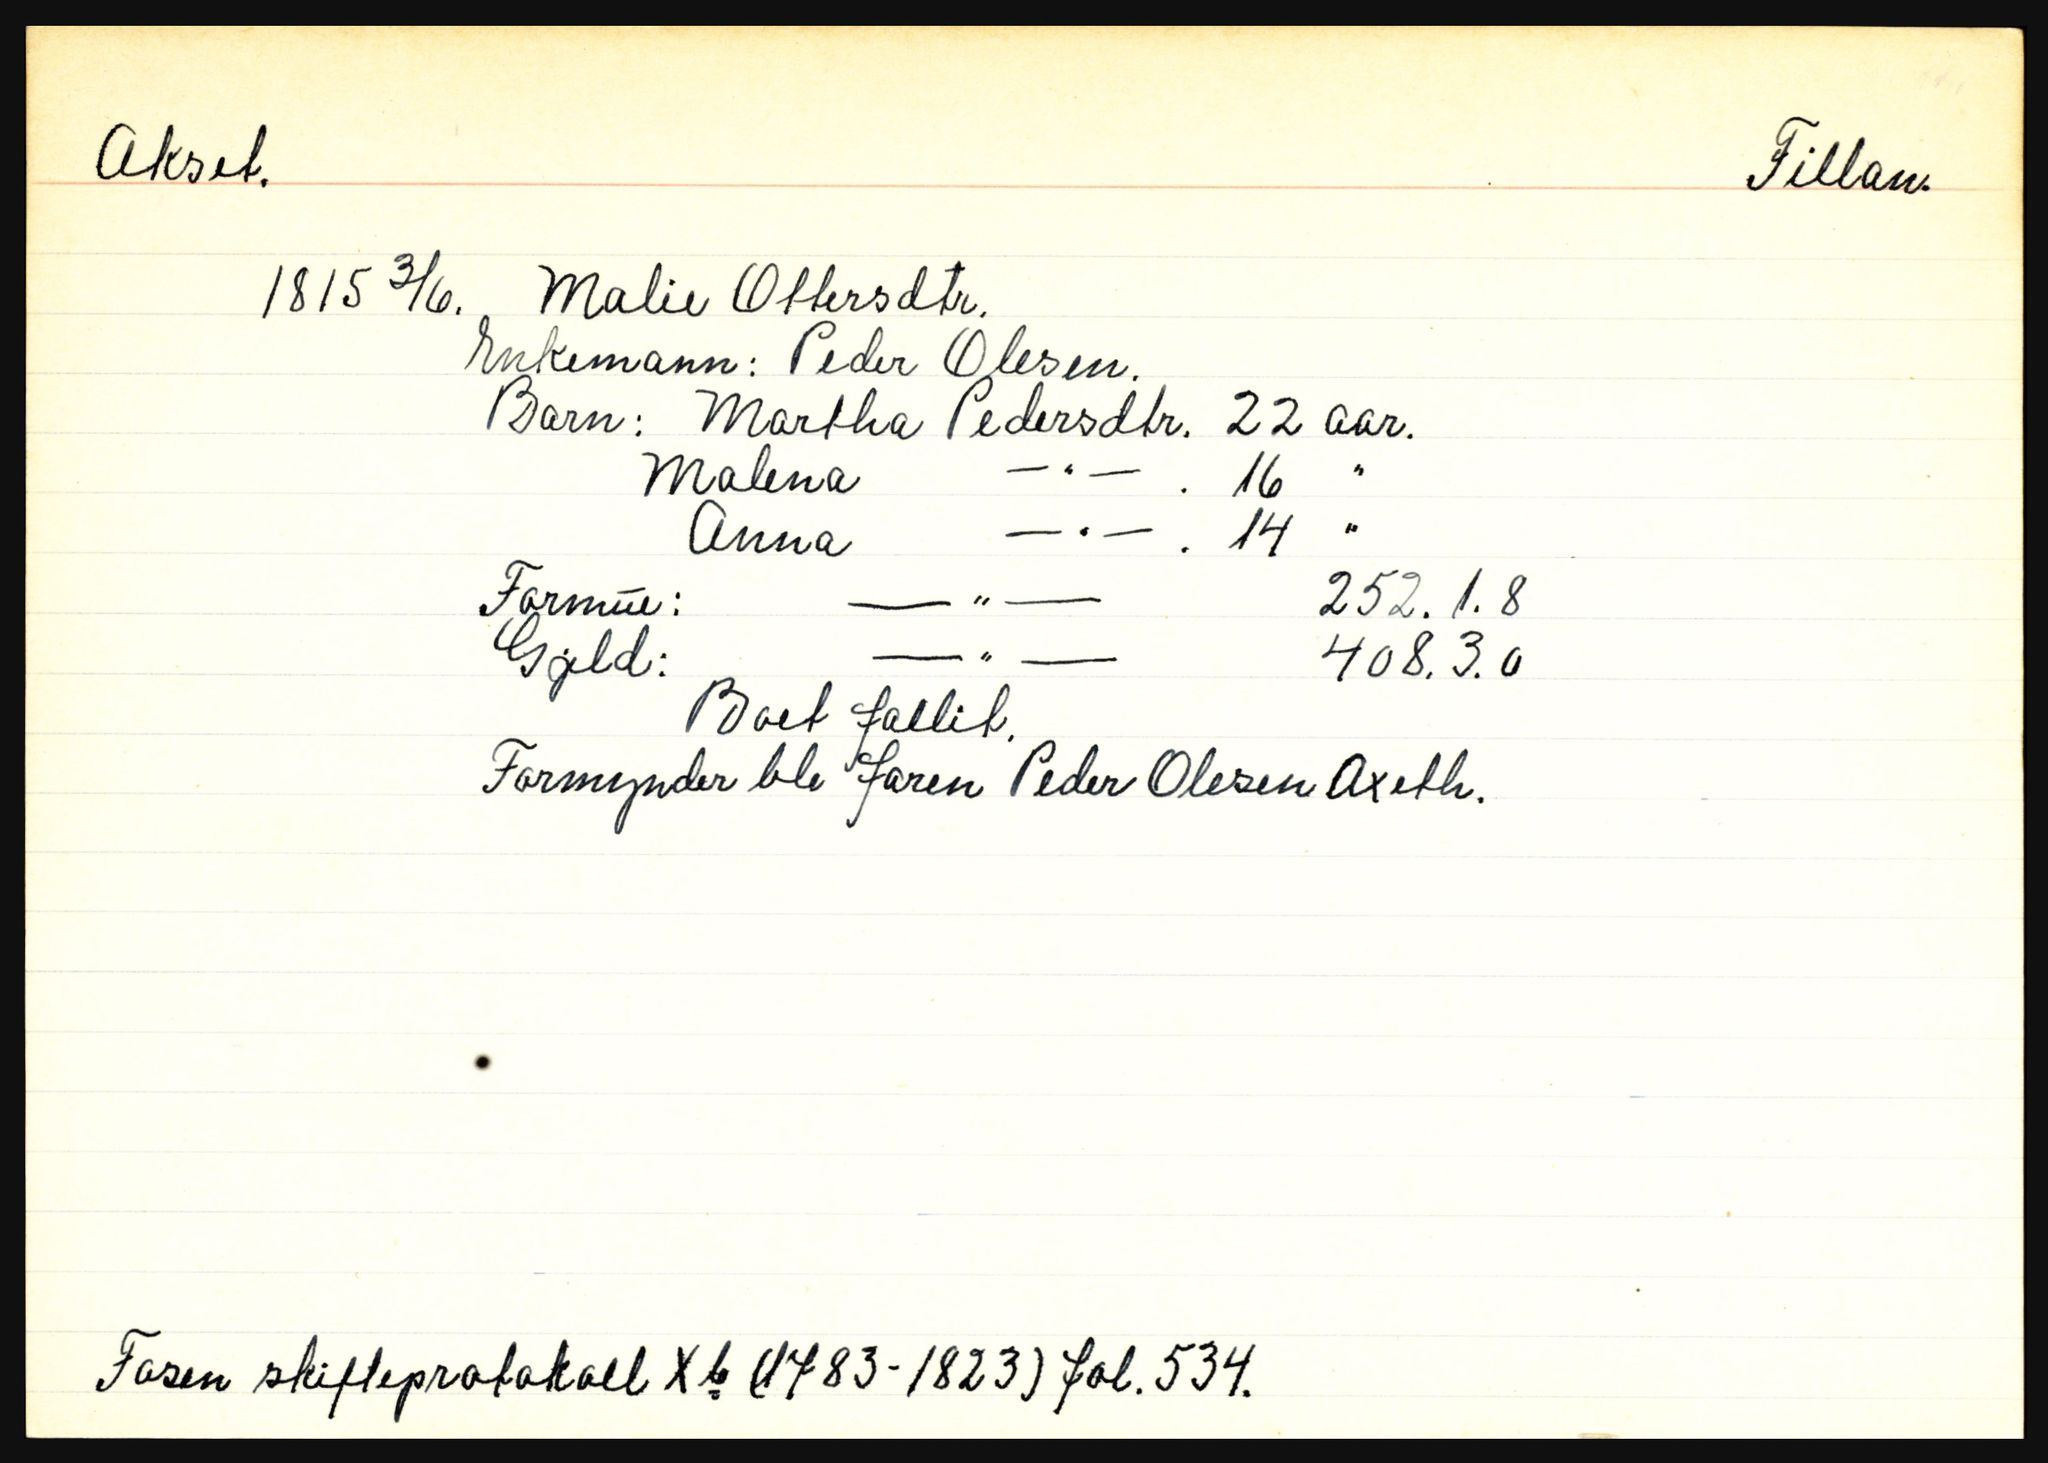 Akset. Fillan.
1815 3/6. Malie Ottersdtr.
Enkemann: Peder Olesen.
Barn: Martha Pedersdtr. 22 aar.
Malena —"— . 16 "
Anna —"— . 14 "
Formue: —"— 252. 1. 8
Gjeld: —"— 408. 3. 0
Boet fallit.
Formynder ble faren Peder Olesen Axeth.
Fosen skifteprotokoll Xb (1783-1823) fol. 534.